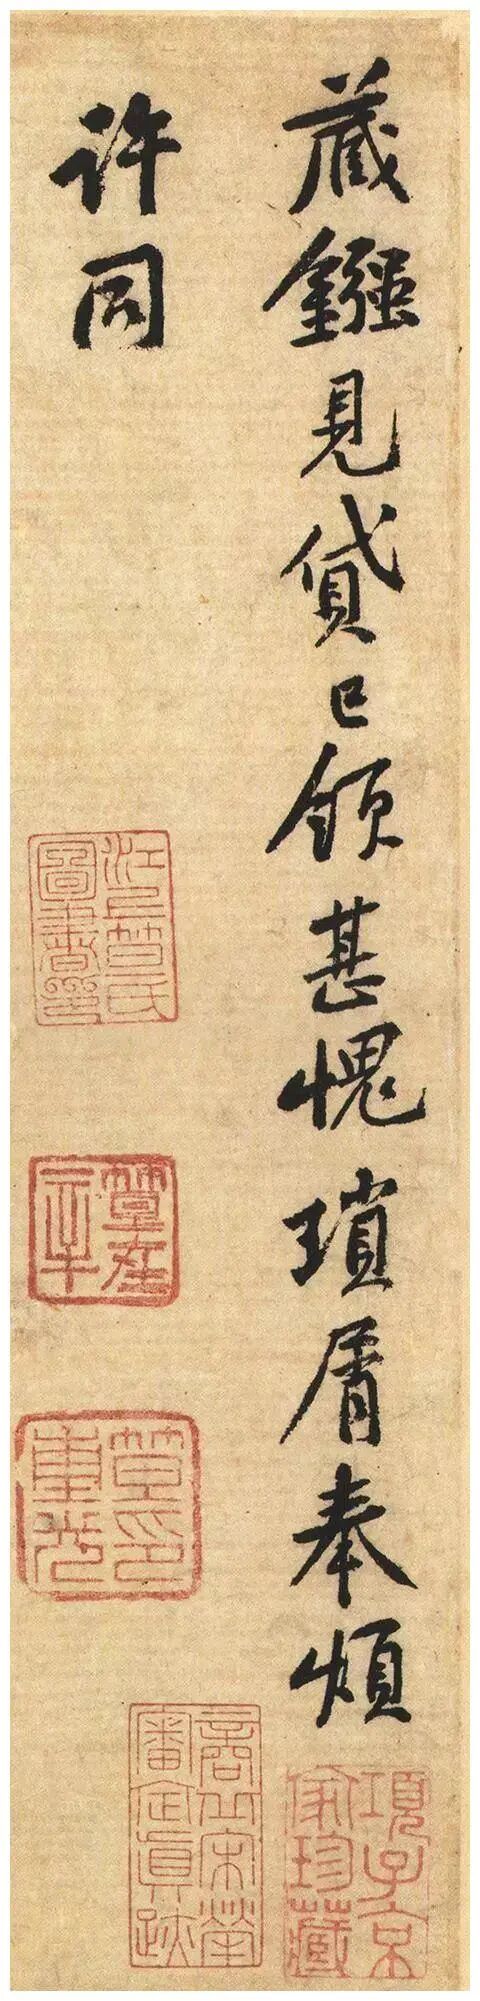 藏鏹見貸已領甚愧瑣屑奉煩
許同
項子京
家珍藏
江上笪氏
圖書印
笪印
重光
商丘宋犖
審定真跡